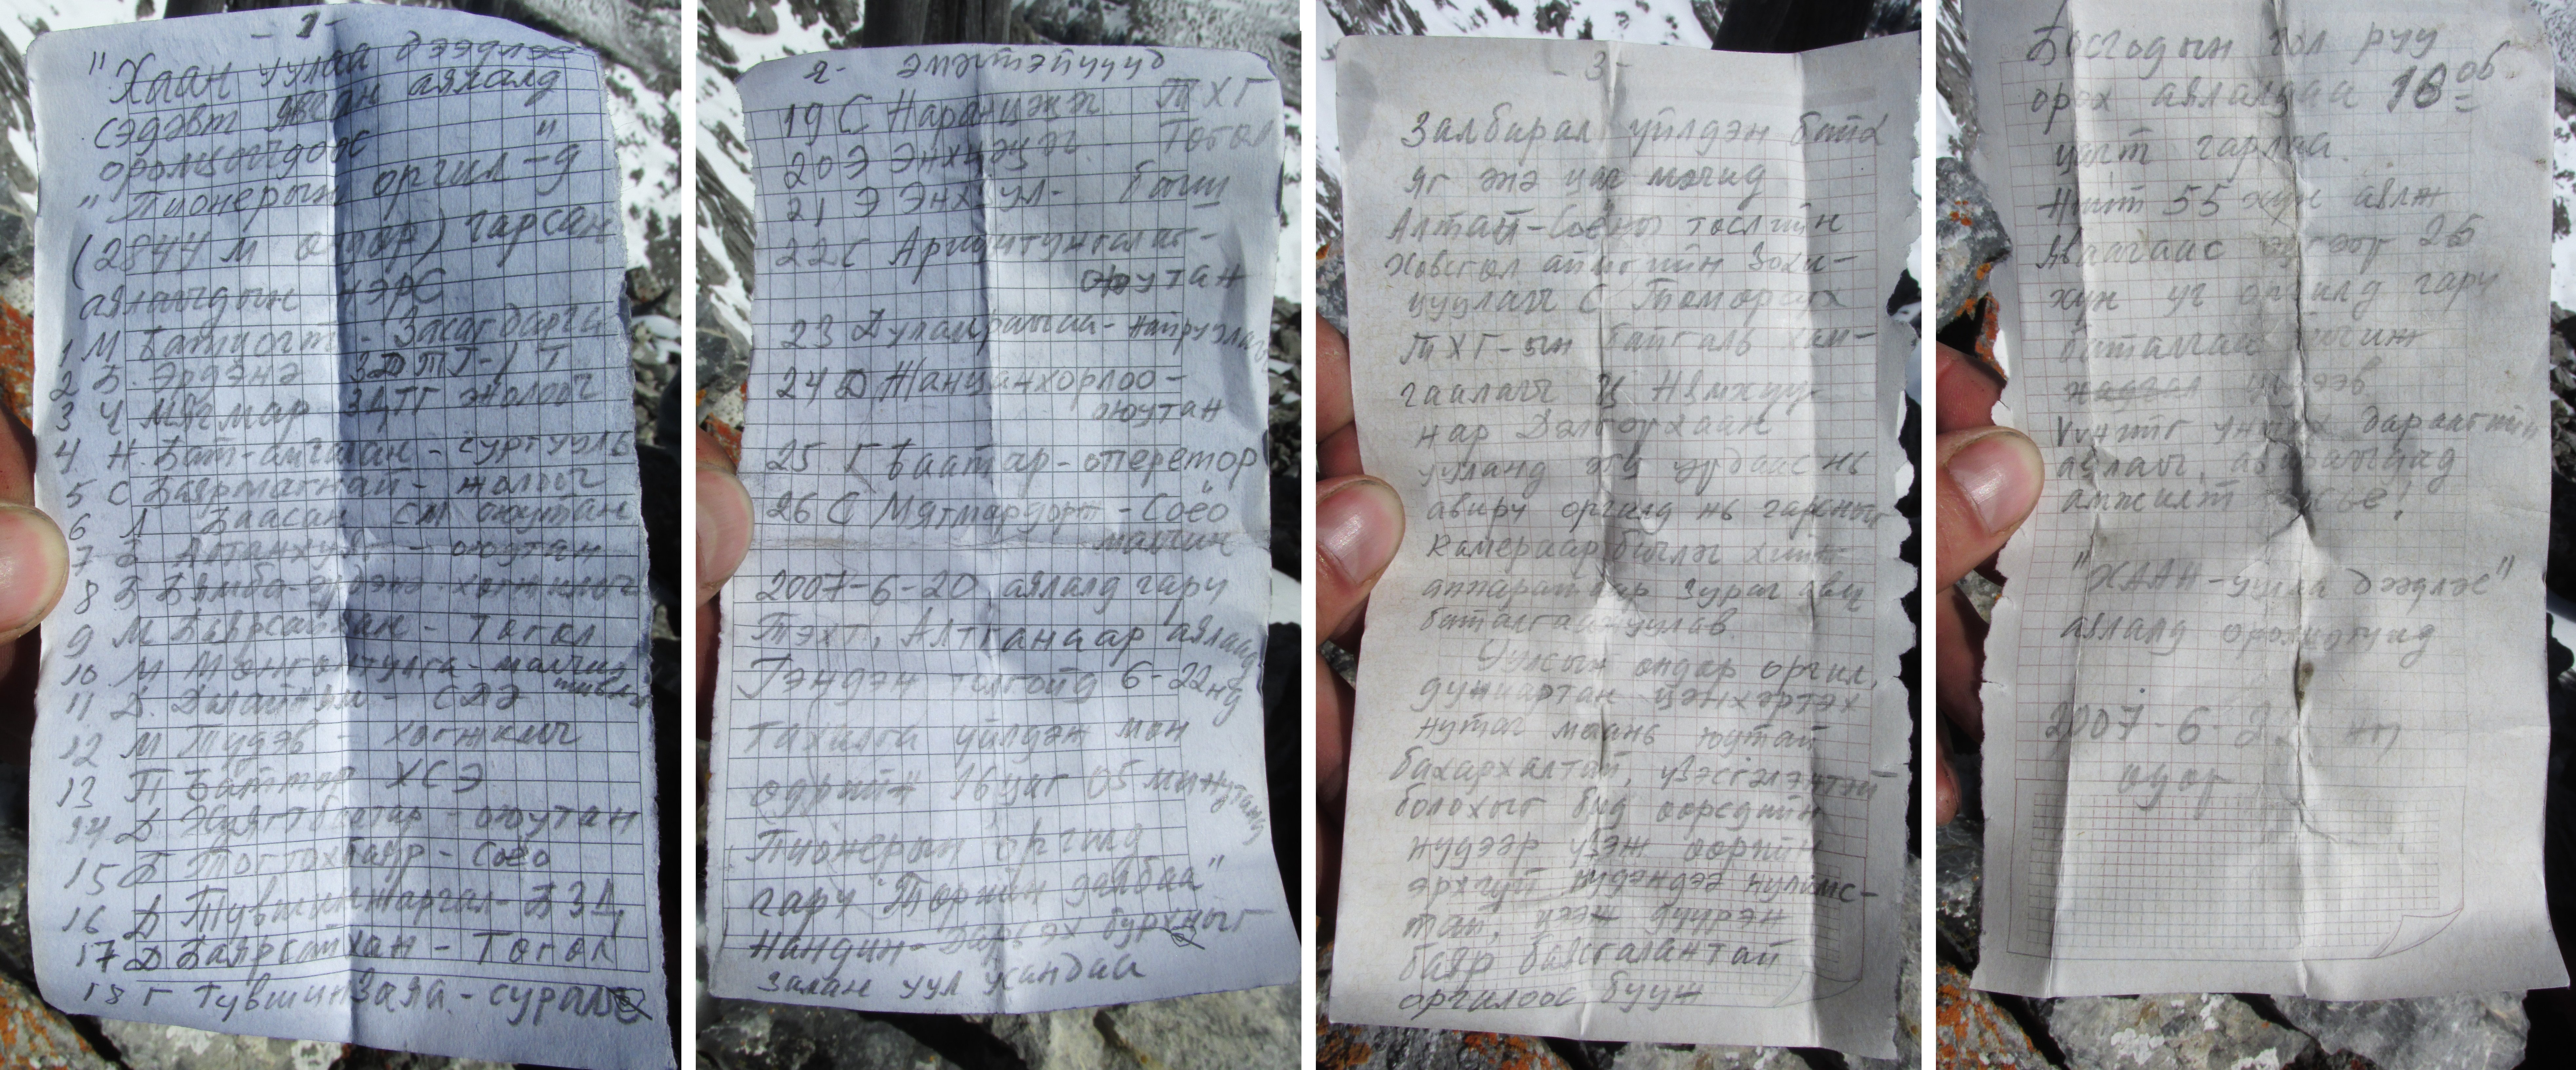 -1-
"Хаан уулаа дээдлэе
сэдэвт явсан аялалд
оролцогчдоос "
"Пионерын оргил-д
(2844 м өндөр) гарсан
аялагчдын нэрс
1 М Батцогт - Засаг дарга
2 Б. Эрдэнэ ЗДТГ-
3 Ч Мягмар ЗДТГ жолооч
4 Н. Бат-амгалан - сургууль
5 С Баярмагнай - жолооч
6 Л Баасан см оюутан
7 Б Алтанхуяг - оюутан
8 Б Бямба-эрдэнэ хөгжимч
9 М Баярсайхан - Тогол
10 М Мөнгөнтулга - малчин
11 Д. Далайням - СДЭ
12 М Түдэв - хөгжимч
13 П Баттөр ХСЭ
14 Д Хуягтбаатар - оюутан
15 Б Тогтохбаяр - Соёо
16 Д Түвшинжаргал - БЗД
17 Д Баярсайхан - Тогол
18 Г Түвшинзаяа - сурагч
2- эмэгтэйчүүд
19 С Наранцэцэг ТХГ
20 Э Энхцэцэг - Тогол
21 Э Энхзул - багш
22 С Ариунтунгалаг -
оюутан
23 Дуламрагчаа - найруулагч
24 Д Жанцанхорлоо -
оюутан
25. Г Баатар - оператор
26 С Мягмардорж - Соёо
малчин
2007-6-20 аялалд гарч
Тэхт, Алтганаар аялаад
Гэндэн толгойд 6-22нд
тахилга үйлдэж мөн
өдрийн 16 цаг 05 минутанд
Пионерын оргилд
гарч "Төрийн далбаа"
нандин - Дарь эх бурхныг
залан уул усандаа
-3-
Залбирал үйлдэн байх
яг энэ цаг мөчид
Алтай-Соёны төслийн
Хөвсгөл аймгийн Зохи-
цуулагч С Төмөрсүх
ТХГ-ын байгаль хам-
гаалагч Ц Нямхүү-
нар Дэлгэрхаан
ууланд ар урдаас нь
авирч оргилд нь гарсныг
камераар бичлэг хийж
аппаратаар зураг авч
баталгаажуулав.
Уулсын өндөр оргил,
дунчартан цэнхэртэх
нутаг маань юутай
бахархалтай, үзэсгэлэнтэй
болохыг бид өөрсдийн
нүдээр үзэж өөрийн
эрхгүй нүдэндээ нулимс-
тай, цээж дүүрэн
баяр баясгалантай
оргилоос бууж
Босгодын гол руу
орох аялалдаа 18 06
цагт гарлаа.
Нийт 55 хүн аялж
яваагаас эдгээр 26
хүн уг оргилд гарч
баталгаа бичиж
үлдээв.
Үүнийг унших дараагийн
аялагч, авирагчдад
амжилт хүсье!
"ХААН-уулаа дээдлэе"
аялалд оролцогчид
2007-6-22 ны
өдөр